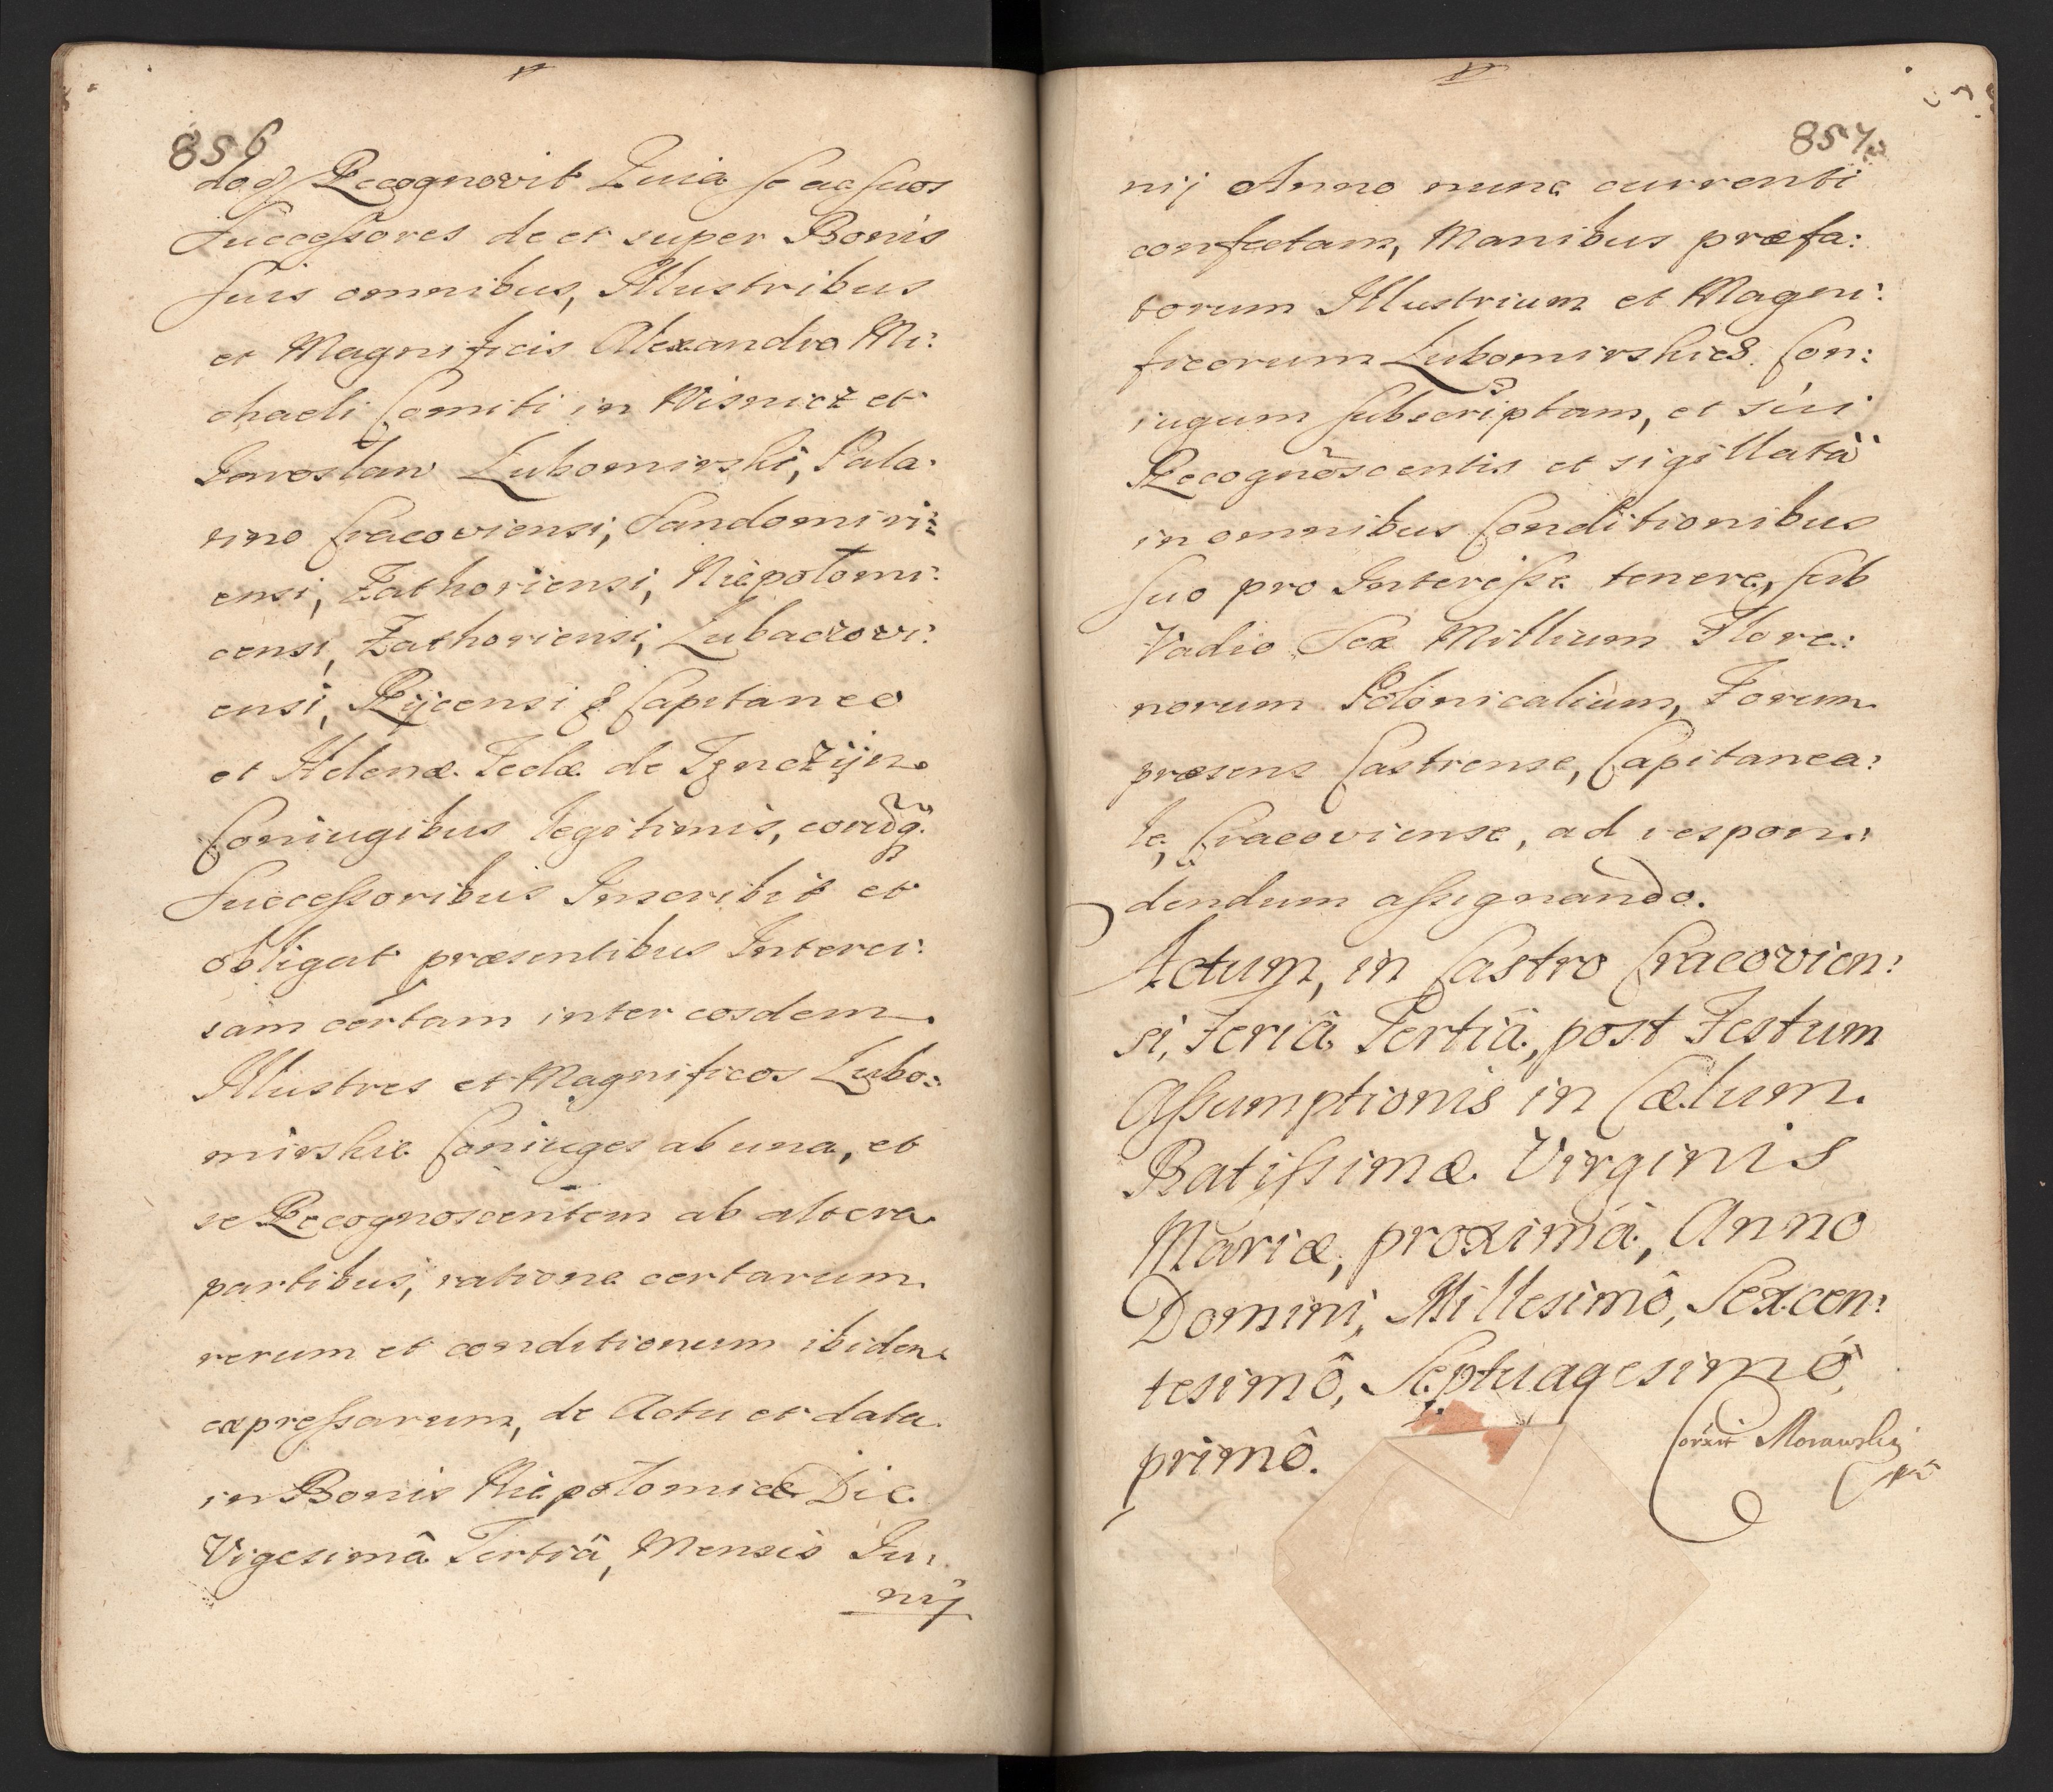 856
Recognovit Quia se ac suos
Successores de et super Bonis
suis omnibus, Illustribus
et Magnificis Alexandro Mi:
chaeli Comiti in Wisnicz et
Jarosław Lubomirski, Pala:
tino Cracoviensi, Sandomiri:
ensi, Zathoriensi, Niepołomi:
censi, Zathoriensi, Lubaczovi:
ensi, Rycensi & Capitaneo
et Helenæ Teclæ de Tęnczÿn
Coniugibus legitimis, eorūdq.
Successoribus Inscribit et
obligat præsentibus Interci:
sam certam inter eosdem
Illustres et Magnificos Lubo:
mirskie Coniuges ab una, et
se Recognoscentem ab altera
partibus, ratione certarum
rerum et conditionum ibidem
expressarum, de Actu et data
in Bonis Niepołomice Die
Vigesimâ Tertiâ, Mensis Iu:
nÿ
857
nij Anno nunc currenti
confectam, Manibus præfa:
torum Illustrium et Magni:
ficorum Lubomirskich Con:
iugum subscriptam, et sui
Recognoscentis et sigillatã
in omnibus Conditionibus
suo pro Interesse tenere, sub
Vadio Sex Millium Flore:
norum Polonicalium, Forum
præsens Castrense, Capitanea:
le, Cracoviense, ad respon:
dendum assignando.
Actum, in Castro Cracovien:
si, Feriâ Tertiâ, post Festum
Assumptionis in Cælum
Batissimæ Virginis
Mariæ, proximâ, Anno
Domini, Millesimô, Sexcen:
tesimô, Septuagesimô,
primô.
Corrit Morawski